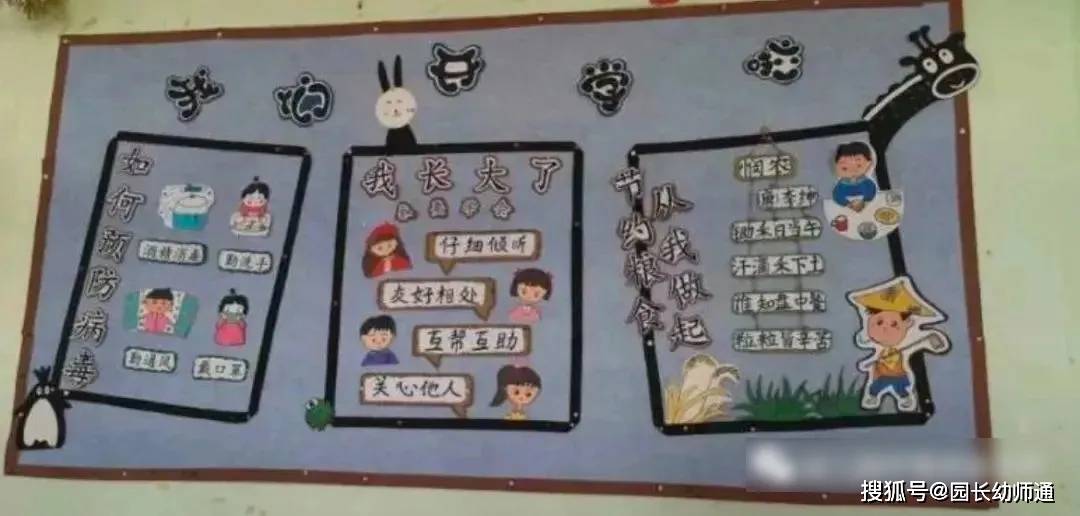 我们开学啦
如何预防病毒
酒精消毒
勤洗手
勤通风
戴口罩
我长大了
仔细倾听
友好相处
互帮互助
关心他人
节约粮食
从我做起
悯农
唐李绅
锄禾日当午
汗滴禾下土
谁知盘中餐
粒粒皆辛苦
搜狐号@园长幼师通